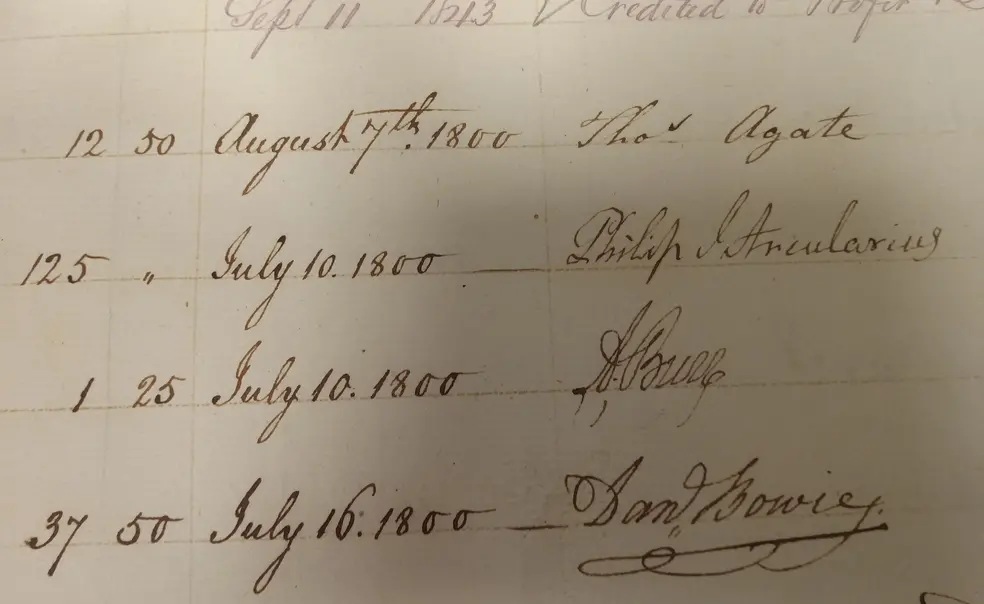 Sept 11 1843 Credited to Profit
12 50 August 7th. 1800 Thos Agate
125 " July 10. 1800 Philip I Arcularius
1 25 July 10. 1800 A. Burr
37 50 July 16. 1800 Danl. Bowie